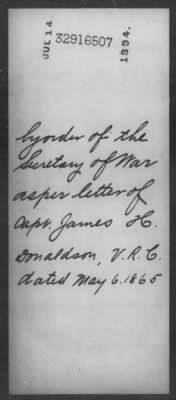 JUL 14. 32916507 1894.
by order of the
Secretary of War
as per letter of
Capt. James H.
Donaldson, V.R.C.
dated May 6.1865